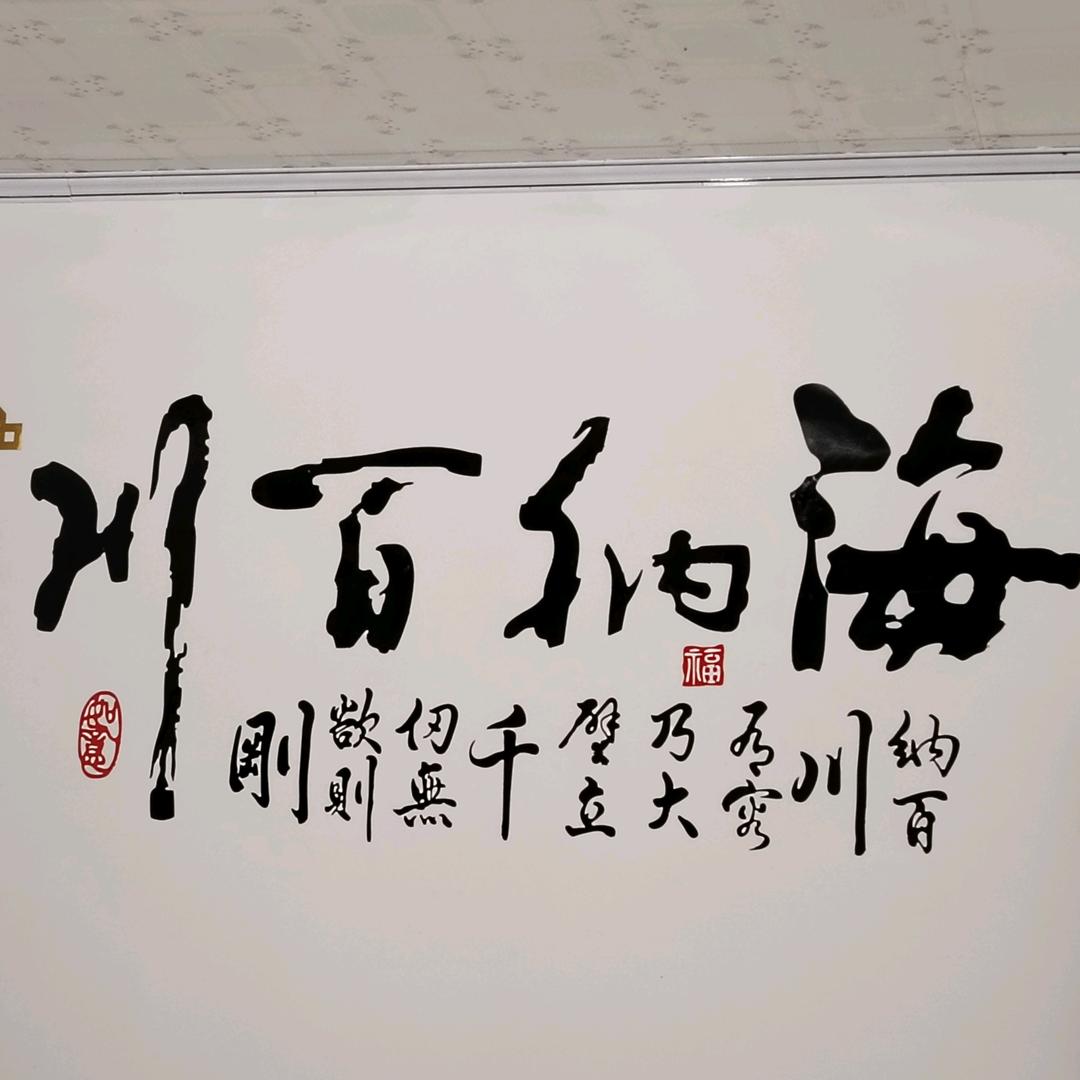 海納百川
福
納百
川
有容
乃大
壁立
千
仞無
欲則
剛
如意